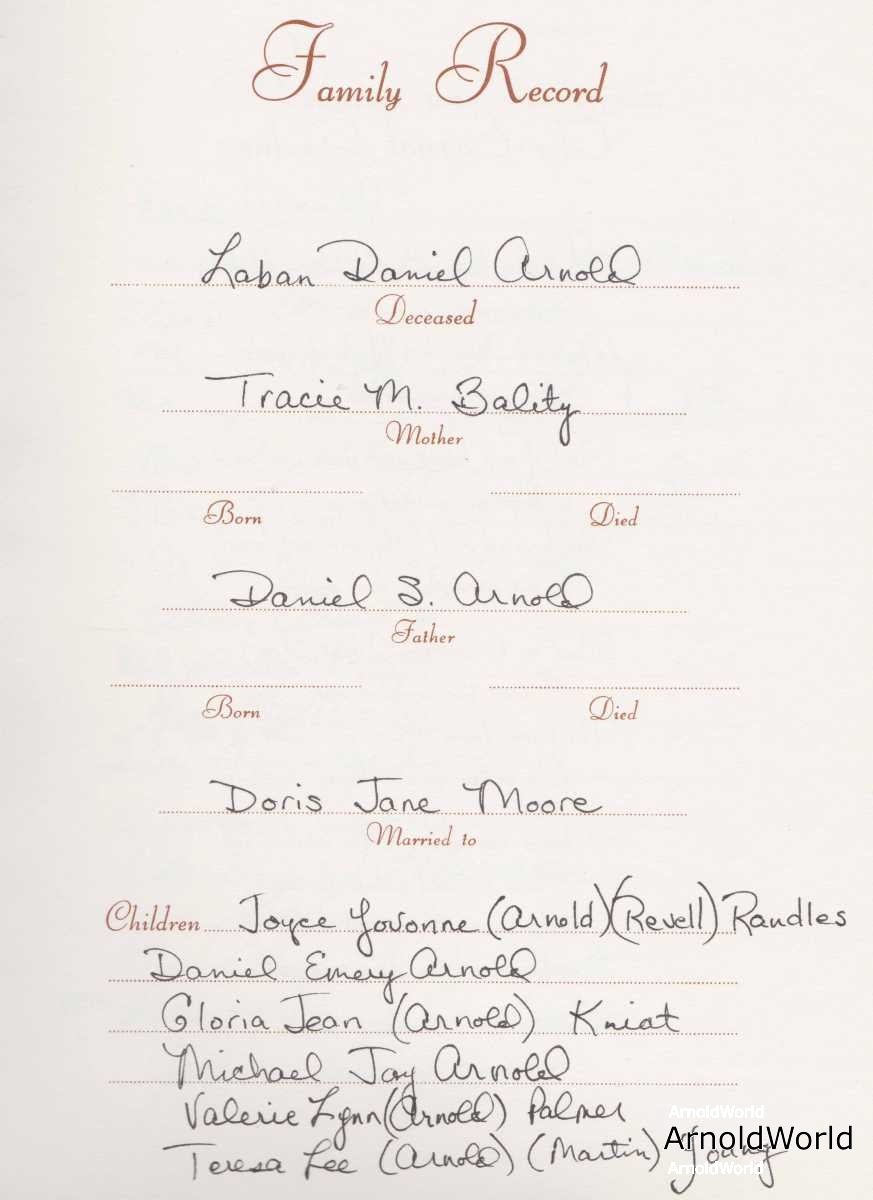 Family Record
Laban Daniel Arnold
Deceased
Tracie M. Bality
Mother
Born Died
Daniel S. Arnold
Father
Born Died
Doris Jane Moore
Married to
Children Joyce Yovonne (Arnold) (Revell) Randles
Daniel Emery Arnold
Gloria Jean (Arnold) Kniat
Michael Jay Arnold
Valerie Lynn (Arnold) Palmer
Teresa Lee (Arnold) (Martin) Young
ArnoldWorld
ArnoldWorld
ArnoldWorld